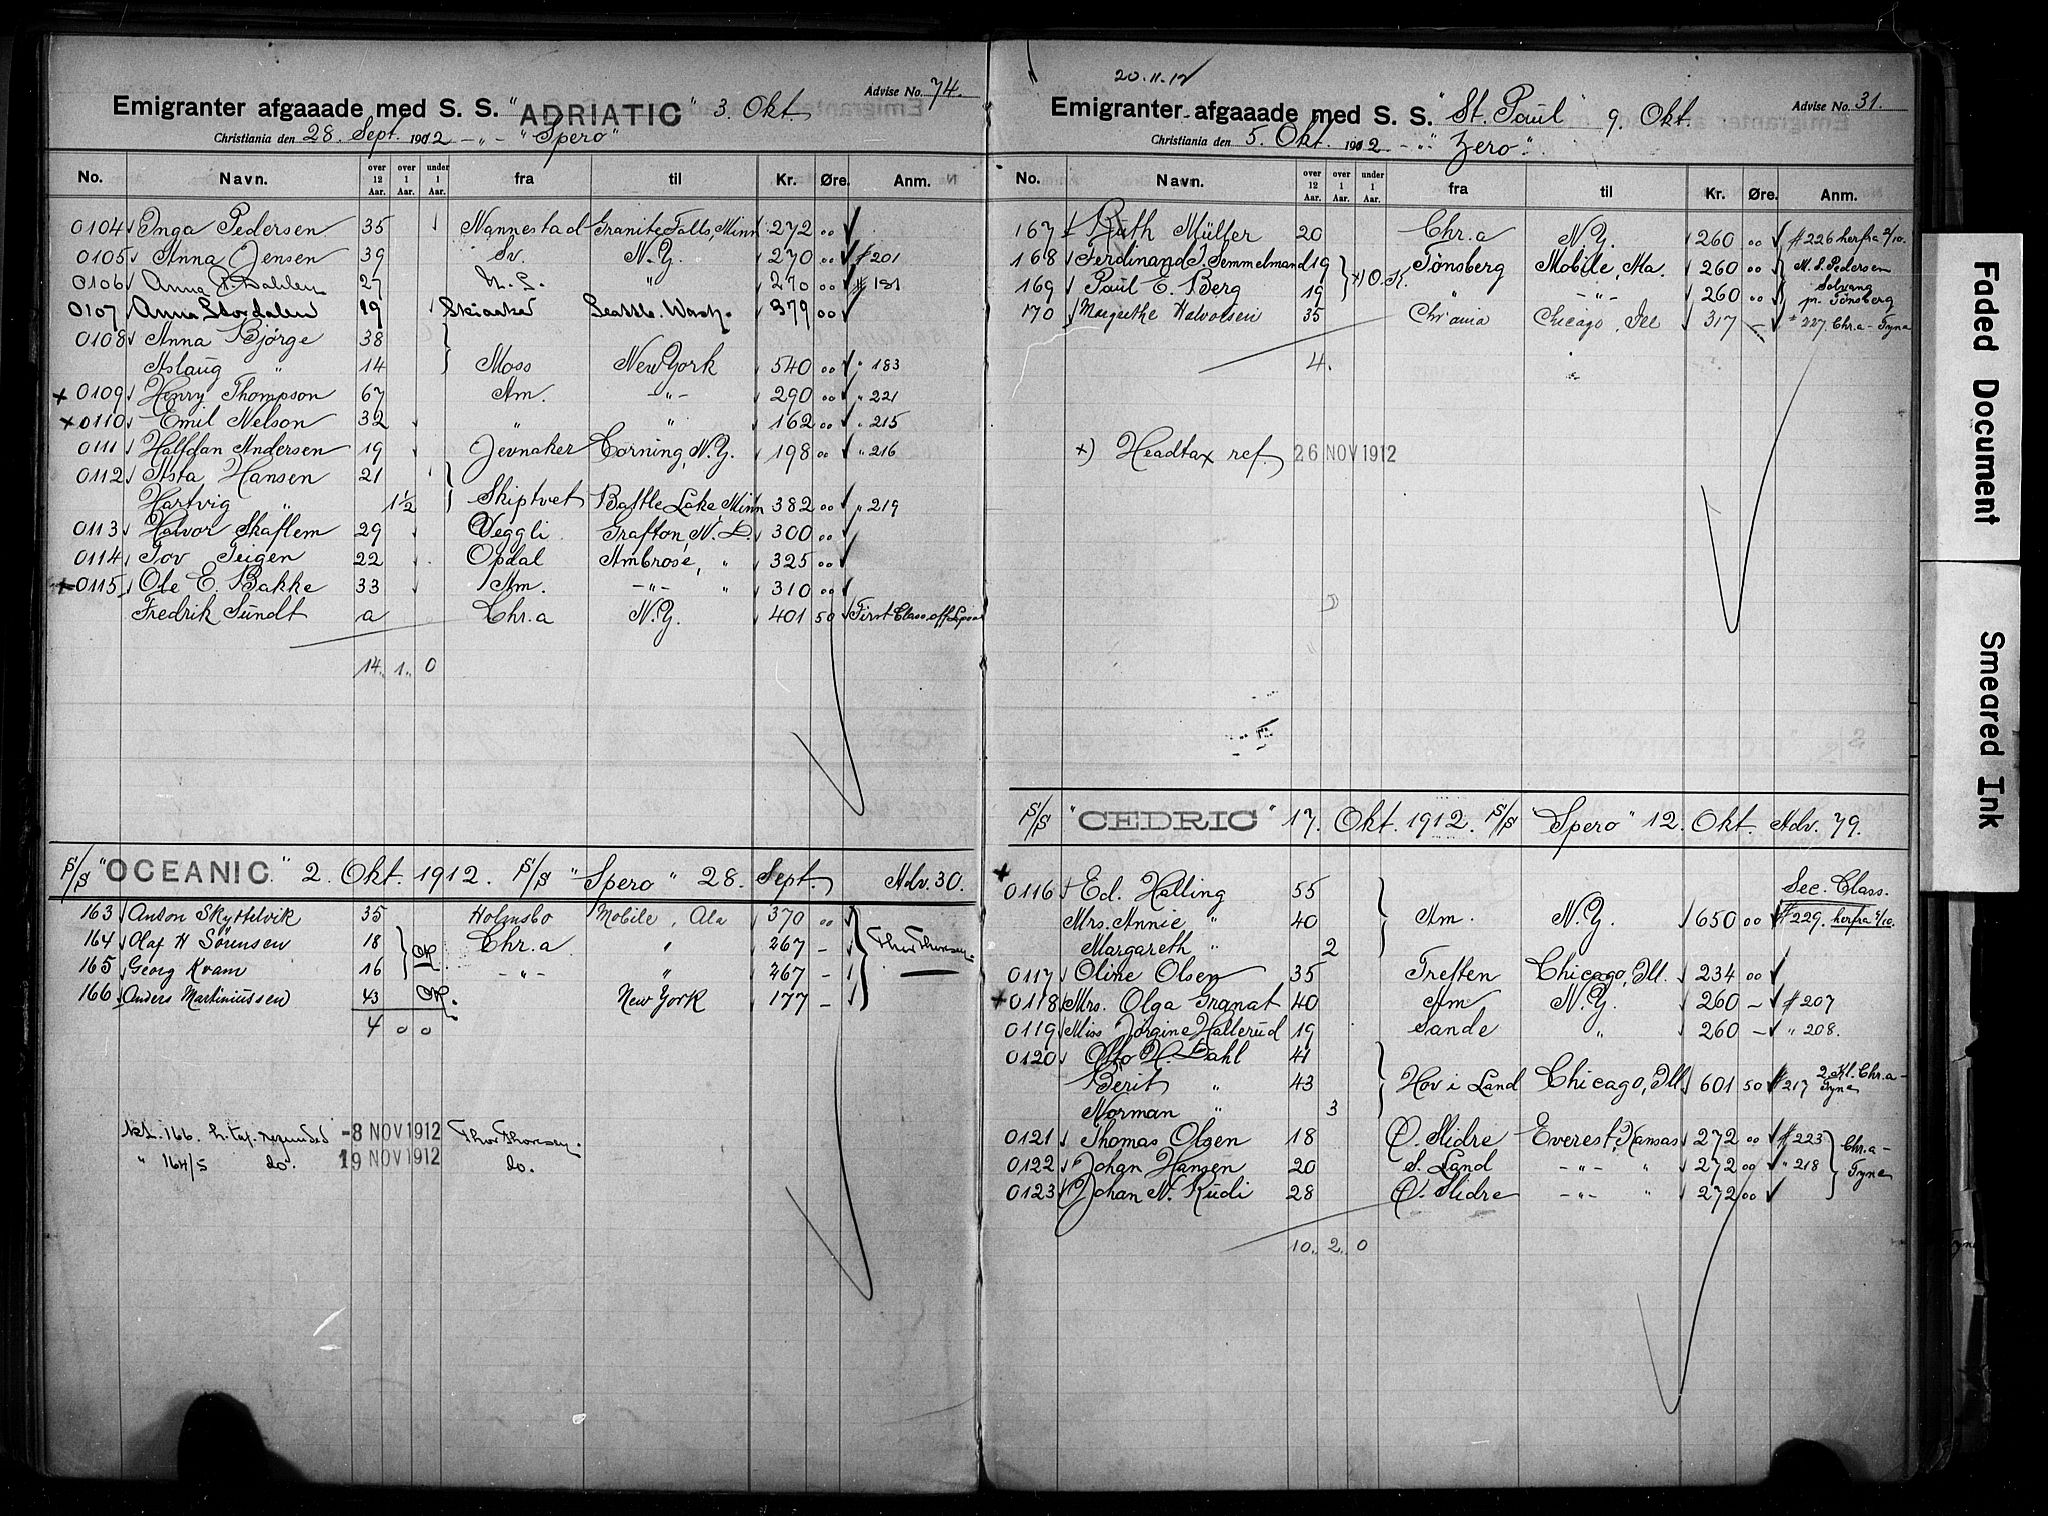 Advise No. 74.
Emigranter afgaaade med S. S. "ADRIATIC" 3. Okt.
Christiania den 28. Sept. 1912 -"- "Spero"
No. Navn. over 12 Aar. over 1 Aar. under 1 Aar. fra til Kr. Øre. Anm.
0104 Inga Pedersen 35 Nannestad Granite Falls, Minn 272 00
0105 Anna Jensen 39 Sv. N.Y. 270 00 # 201
0106 Anna Dahlen 27 " 270 00 # 181
0107 Anna Stordalen 19 Skiaaker Seattle. Wash. 379 00
0108 Anna Bjørge 38
Aslaug " 14 Moss New York 540 00 " 183
x 0109 Henry Thompson 67 Am. -"- 290 00 " 221
x 0110 Emil Nelson 32 " " 162 00 " 215
0111 Halfdan Andersen 19 Jevnaker Corning, N.Y. 198 00 " 216
0112 Asta Hansen 21
Hartvig " 1½ Skiptvet Battle Lake, Minn 382 00 " 219
0113 Halvor Skaflem 29 Veggli Grafton, N. D. 300 00
0114 Tov Teigen 22 Opdal Ambrose, " 325 00
x 0115 Ole E. Bakke 33 Am. -"- " 310 00
Fredrik Sundt a Chr.a N.Y. 401 50 First Class
14. 1. 0
S/S "OCEANIC" 2. Okt. 1912. S/S "Spero" 28. Sept. Adv. 30.
163 Anton Skyttelvik 35 Holmsbo Mobile, Ala 370 00
164 Olaf H Sörensen 18 Chr.a " 267 - Thor Thoresen
165 Georg Kvam 16 -"- " 267 -
166 Anders Martiniussen 43 New York 177 -
4 0 0
166. h. tax. refunded -8 NOV 1912 Thor Thoresen.
" 164/5 do. 19 NOV 1912 do.
20.11.12
Advise No. 31.
Emigranter afgaaade med S. S. "St. Paul" 9. Okt.
Christiania den 5. Okt. 1912 -"- "Zero"
No. Navn. over 12 Aar. over 1 Aar. under 1 Aar. fra til Kr. Øre. Anm.
167 Ruth Müller 20 Chr.a N.Y. 260 00 # 226 herfra 2/10.
168 Ferdinand J. Semmelmand 19 Tønsberg Mobile, Ala. 260 00 M. S. Pedersen
169 Paul E. Berg 19 x) O.K. -"- 260 00 Solvang pr. Tønsberg
170 Margrethe Halvorsen 35 Chr'ania Chicago, Ill 317 - # 227 Chr.a - Tyne
4.
x) Headtax ref. 26 NOV 1912
S/S "CEDRIC" 17. Okt. 1912. S/S "Spero" 12. Okt. Adv. 79.
Sec. Class.
x 0116 Ed. Halling 55
Mrs. Annie " 40 Am. N.Y. 650 00 # 229. herfra 9/10.
Margareth " 2
0117 Oline Olsen 35 Tretten Chicago, Ill. 234 00
x 0118 Mrs. Olga Granat 40 Am N.Y. 260 - # 207
0119 Miss Jörgine Hallerud 19 Sande " 260 - " 208.
0120 Otto H. Dahl 41
Berit " 43 Hov i Land Chicago, Ill. 601 50 # 217 2. Kl. Chr.a - Tyne
Norman " 3
0121 Thomas Olsen 18 Ø. Slidre Everest, Kansas 272 00 # 223 Chr.a -
0122 Johan Hansen 20 S. Land -"- " 272 00 " 218 Tyne
0123 Johan N. Rudi 28 Ø. Slidre -"- " 272 00
10. 2. 0
Faded Document
Smeared Ink